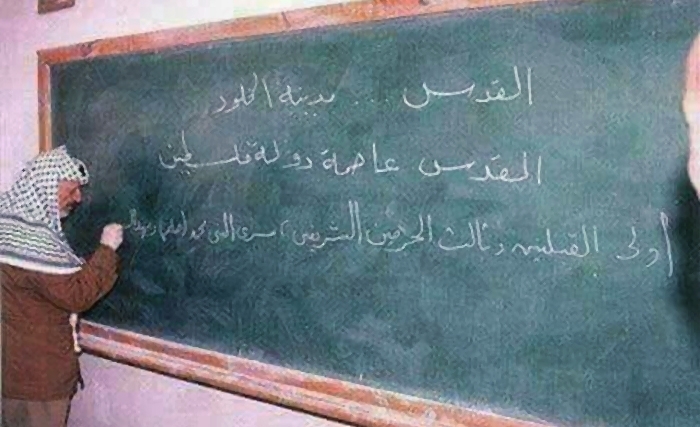 القدس ... مدينة الخلود
القدس عاصمة دولة فلسطين
أولى القبلتين وثالث الحرمين الشريفين، مسرى النبي محمد